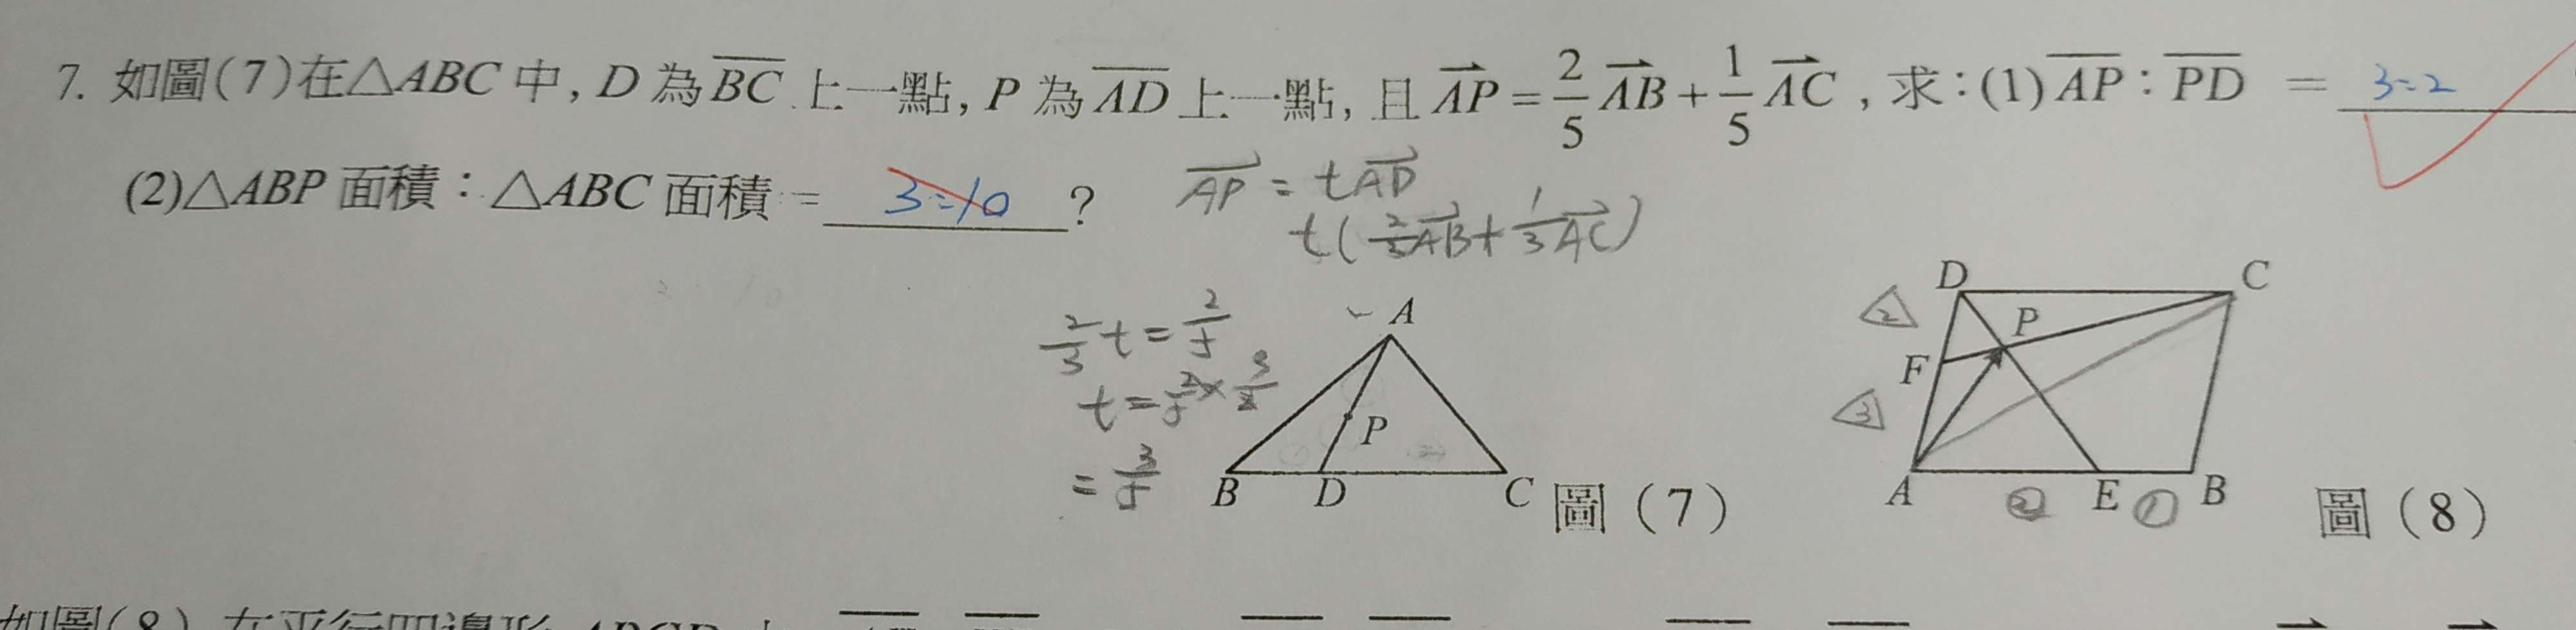 7. 如圖(7)在△ABC 中, D 為 BC 上一點, P 為 AD 上一點, 且 AP = 2/5 AB + 1/5 AC , 求:(1) AP : PD = 3:2
(2)△ABP 面積:△ABC 面積 = 3:10 ?
AP = tAD
t(2/3 AB + 1/3 AC)
2/3 t = 2/5
t = 2/5 × 3/2
= 3/5
A
P
B D C
圖 (7)
D C
P
F
A E B
2
3
2 1
圖 (8)
如圖(8) 在平行四邊形 ABCD